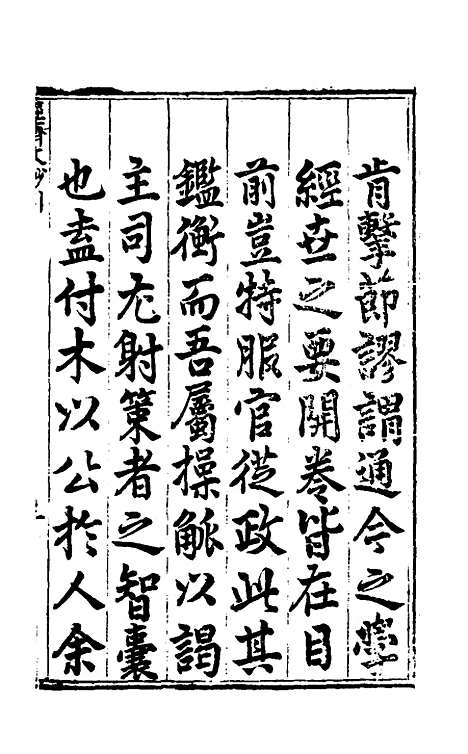 肯擊節謬謂通今之學
經世之要開卷皆在目
前豈特服官從政此其
鑑衡而吾屬操觚以謁
主司尤射策者之智囊
也盍付木以公於人余
經濟文鈔